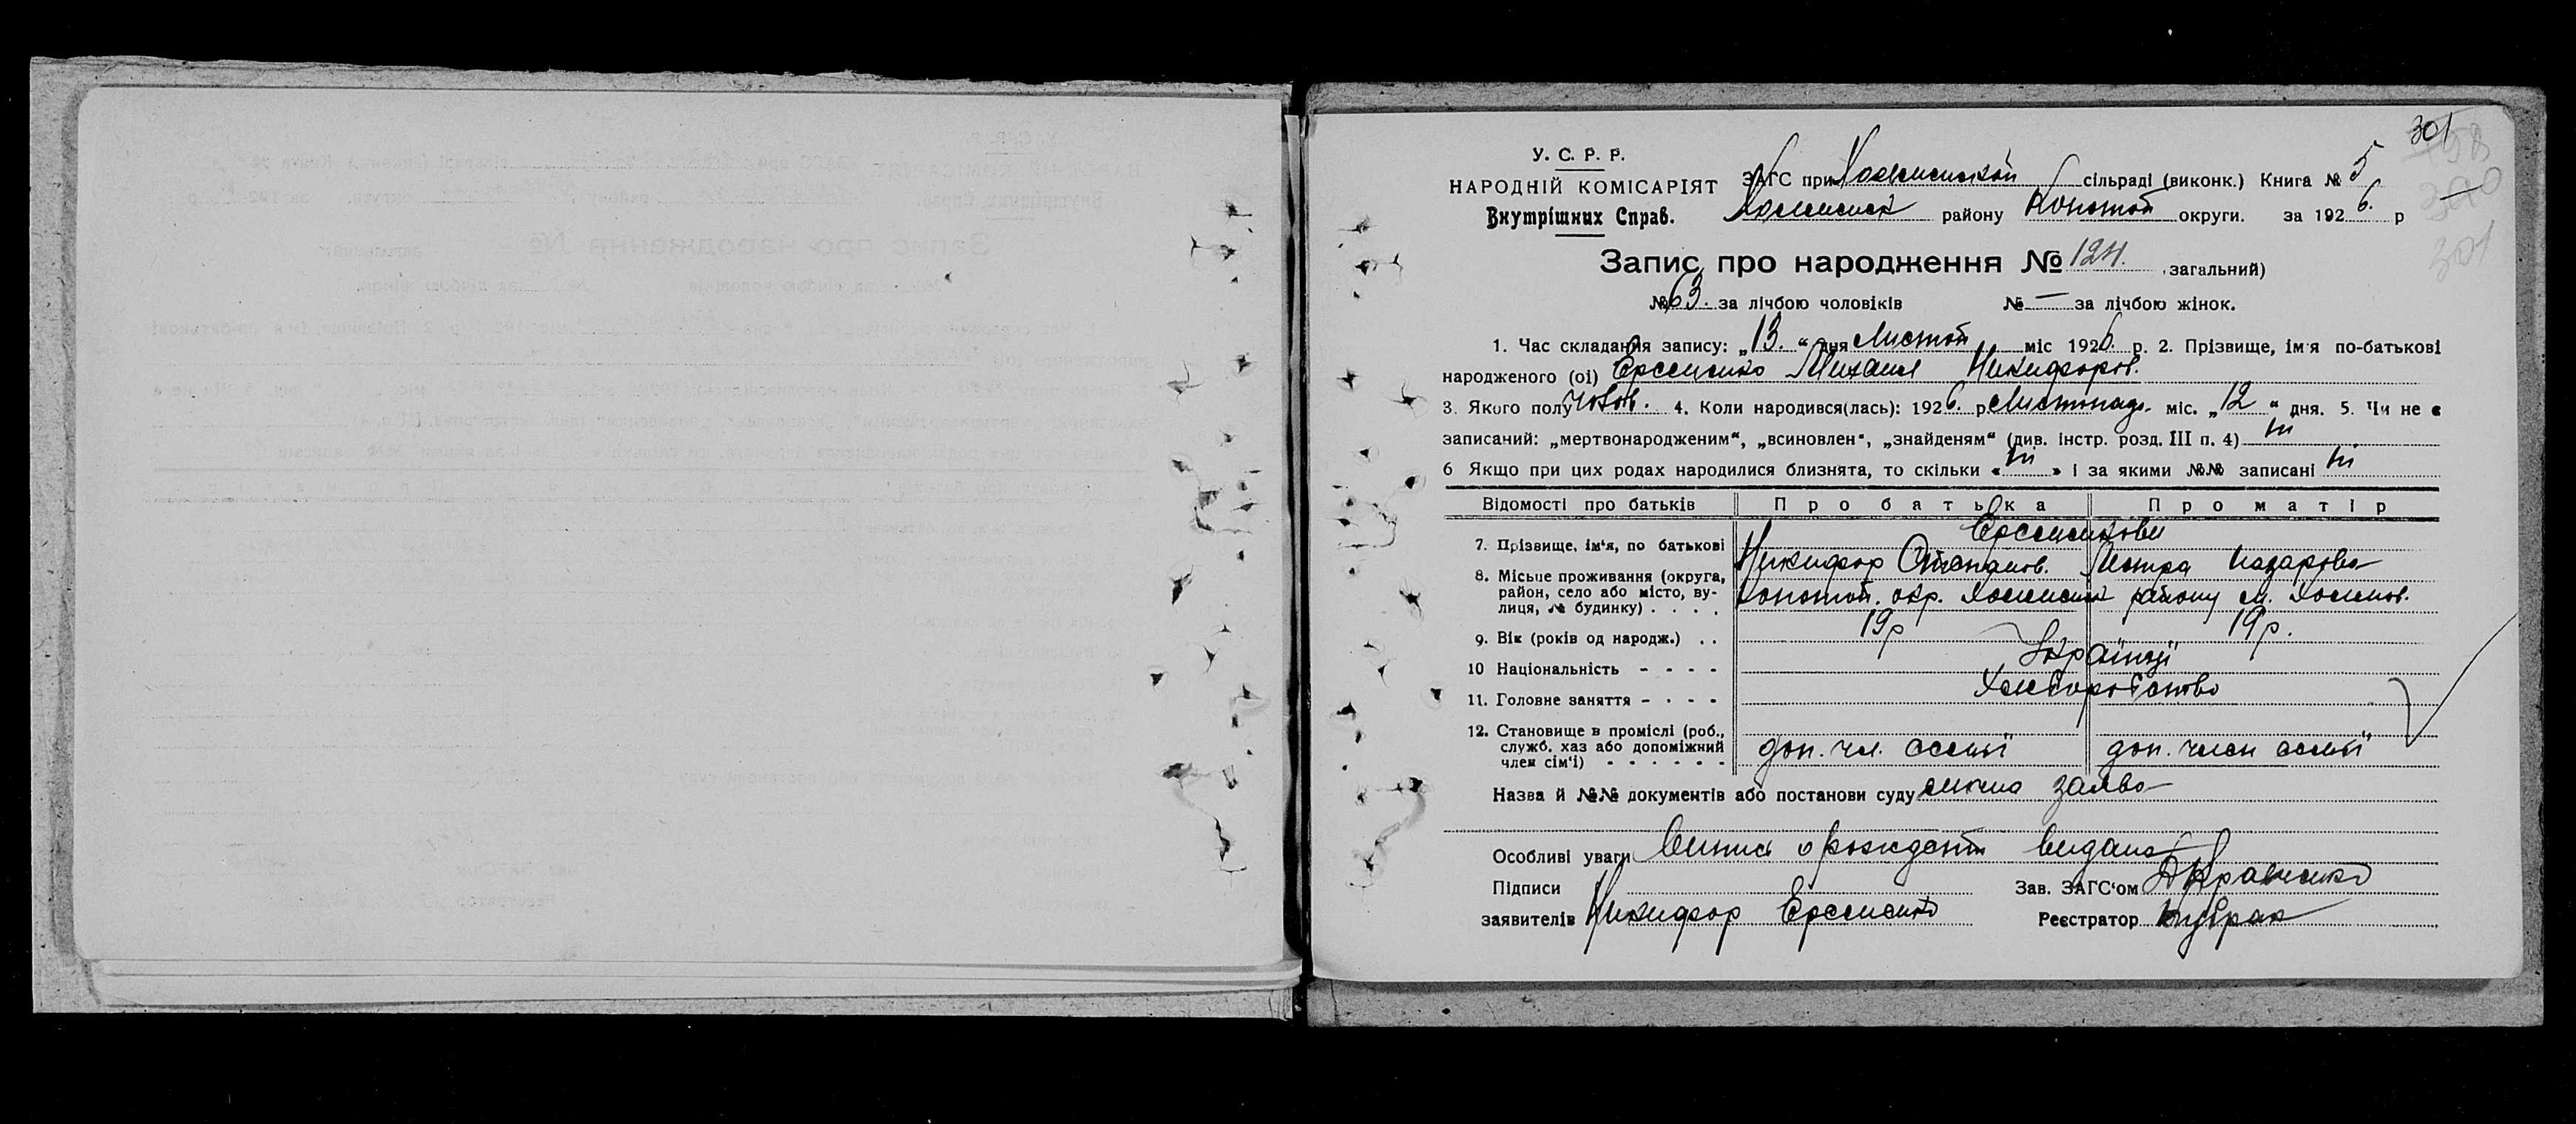 301
У. С. Р. Р.
НАРОДНІЙ КОМІСАРІЯТ
Внутрішних Справ.
ЗАГС при сільраді (виконк.) Книга № 5
району Конотоп округи. за 1926 р
300
301
Запис про народження № 124. загальний)
№ 63. за лічбою чоловіків № — за лічбою жінок.
1. Час складання запису: „13.“ дня Листоп міс 1926. р. 2. Прізвище, ім'я по-батькові
народженого (ої) Михаил Никифоров.
3. Якого полу чолов. 4. Коли народився(лась): 1926. р. Листопад. міс. „12“ дня. 5. Чи не є
записаний: „мертвонародженим“, „всиновлен“, „знайденям“ (див. інстр. розд. III п. 4) ні
6 Якщо при цих родах народилися близнята, то скільки «ні» і за якими №№ записані ні
Відомості про батьків Про батька Про матір
7. Прізвище, ім‘я, по батькові
Никифор Степанов. Назарова
8. Місьце проживання (округа, район, село або місто, вулиця, № будинку) . . . .
Конотоп. окр. району
9. Вік (років од народж.) . . 19р 19р.
10 Національність - - - - Українці
11. Головне заняття - - - - Хліборобство
12. Становище в проміслі (роб., служб. хаз або допоміжний член сім‘ї) - - - - - -
доп. чл. семьї доп. член семьї
Назва й №№ документів або постанови суду заява
Особливі уваги Випись о видана
Підписи Зав. ЗАГС‘ом Кравченко
заявителів Никифор Реєстратор